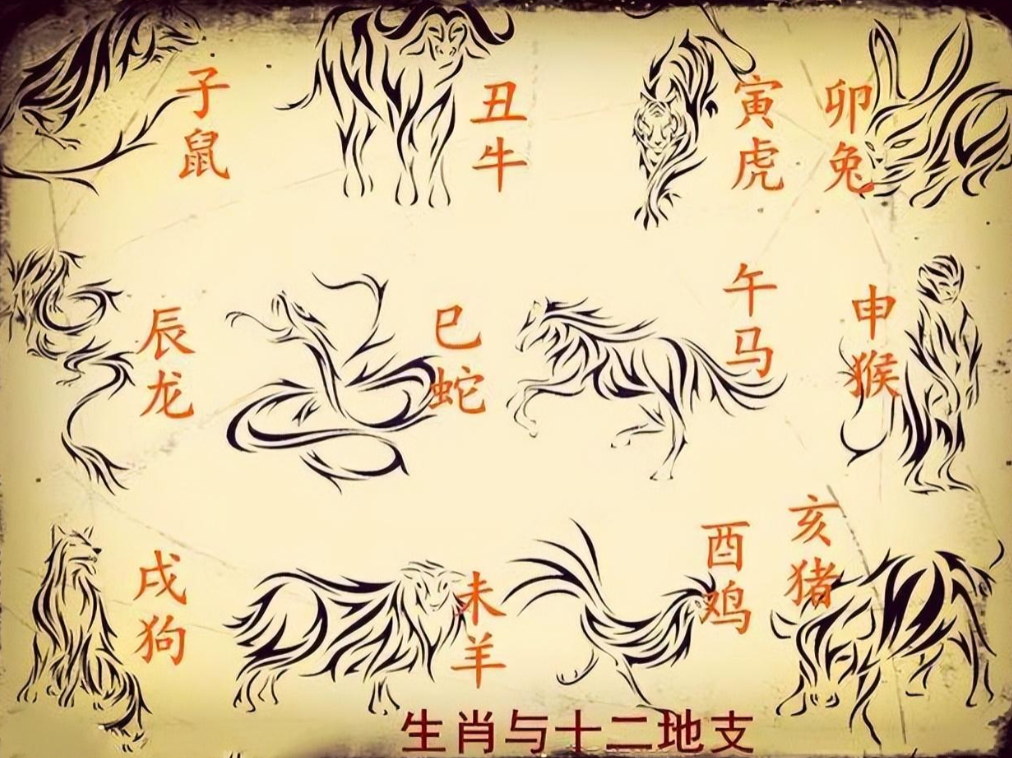 子鼠
丑牛
寅虎
卯兔
辰龙
巳蛇
午马
申猴
戌狗
未羊
酉鸡
亥猪
生肖与十二地支